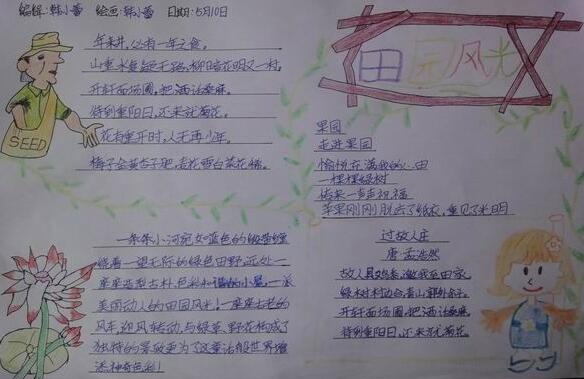 编辑：韩小蕾 绘画：韩小蕾 日期：5月10日
田园风光
SEED
山重水复疑无路，柳暗花明又一村。
开轩面场圃，把酒话桑麻。
待到重阳日，还来就菊花。
花有重开时，人无再少年。
梅子金黄杏子肥，麦花雪白菜花稀。
果园
走进果园
一棵棵绿树
传来一声声祝福
苹果刚刚脱去了纸衣，重见了光明
一条条小河宛如蓝色的
绕着一望无际的绿色田野，远处一
座座
美丽动人的田园风光！一座座古老的
风车迎风转动，与绿草、野花构成了
独特的景致更为了这童话般世界增
添神奇色彩！
过故人庄
唐·孟浩然
故人具鸡黍，邀我至田家。
绿树村边合，青山郭外斜。
开轩面场圃，把酒话桑麻。
待到重阳日，还来就菊花。